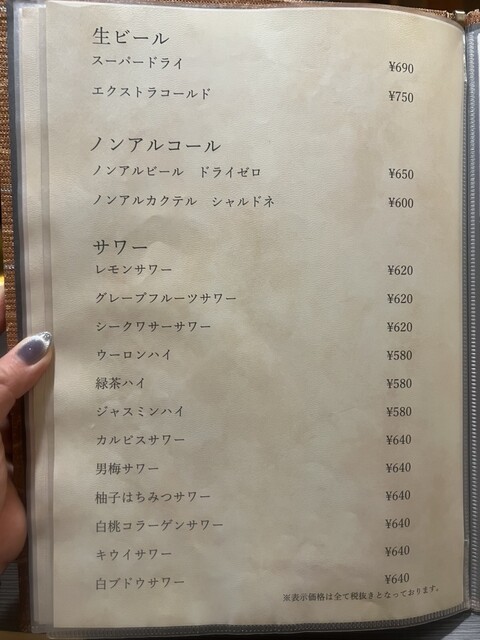 生ビール
スーパードライ ¥690
エクストラコールド ¥750
ノンアルコール
ノンアルビール ドライゼロ ¥650
ノンアルカクテル シャルドネ ¥600
サワー
レモンサワー ¥620
グレープフルーツサワー ¥620
シークワサーサワー ¥620
ウーロンハイ ¥580
緑茶ハイ ¥580
ジャスミンハイ ¥580
カルピスサワー ¥640
男梅サワー ¥640
柚子はちみつサワー ¥640
白桃コラーゲンサワー ¥640
キウイサワー ¥640
白ブドウサワー ¥640
※表示価格は全て税抜きとなっております。